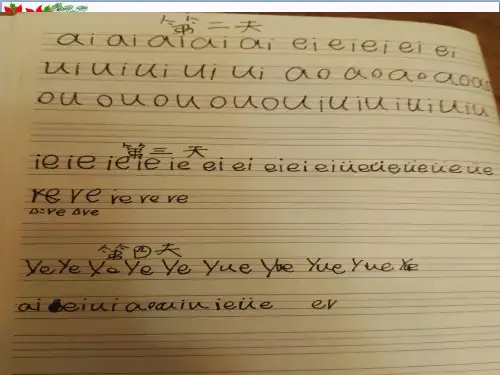 第二天
ai ai ai ai ai ei ei ei ei ei
ui ui ui ui ui ao ao ao ao ao
ou ou ou ou ou iu iu iu iu iu
第三天
ie ie ie ie ie ei ei ei ei ei üe üe üe üe üe
re re re re re
Δ=re Δre
第四天
Ye Ye Ye Ye Ye Yue Yue Yue Yue Yue
ai ei ui ao ou iu ie üe er